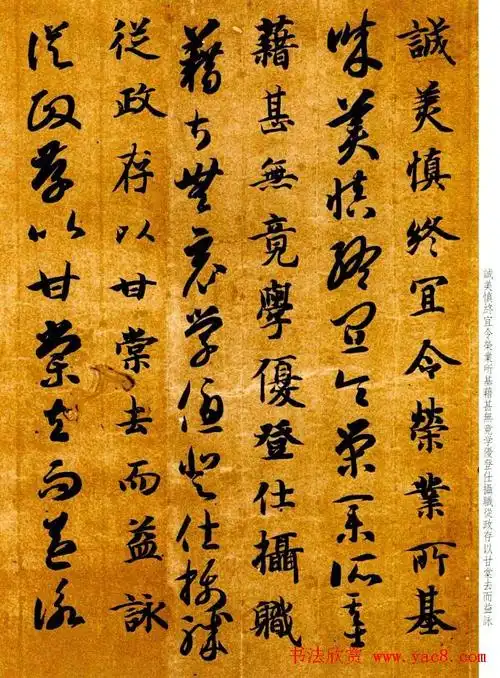 誠美慎終宜令榮業所基藉甚無竟学優登仕攝職從政存以甘棠去而益詠
誠美慎終宜令榮業所基
誠美慎終宜令榮業所基
藉甚無竟學優登仕攝職
藉甚無竟学優登仕攝職
從政存以甘棠去而益詠
從政存以甘棠去而益詠
书法欣赏 www.yac8.com